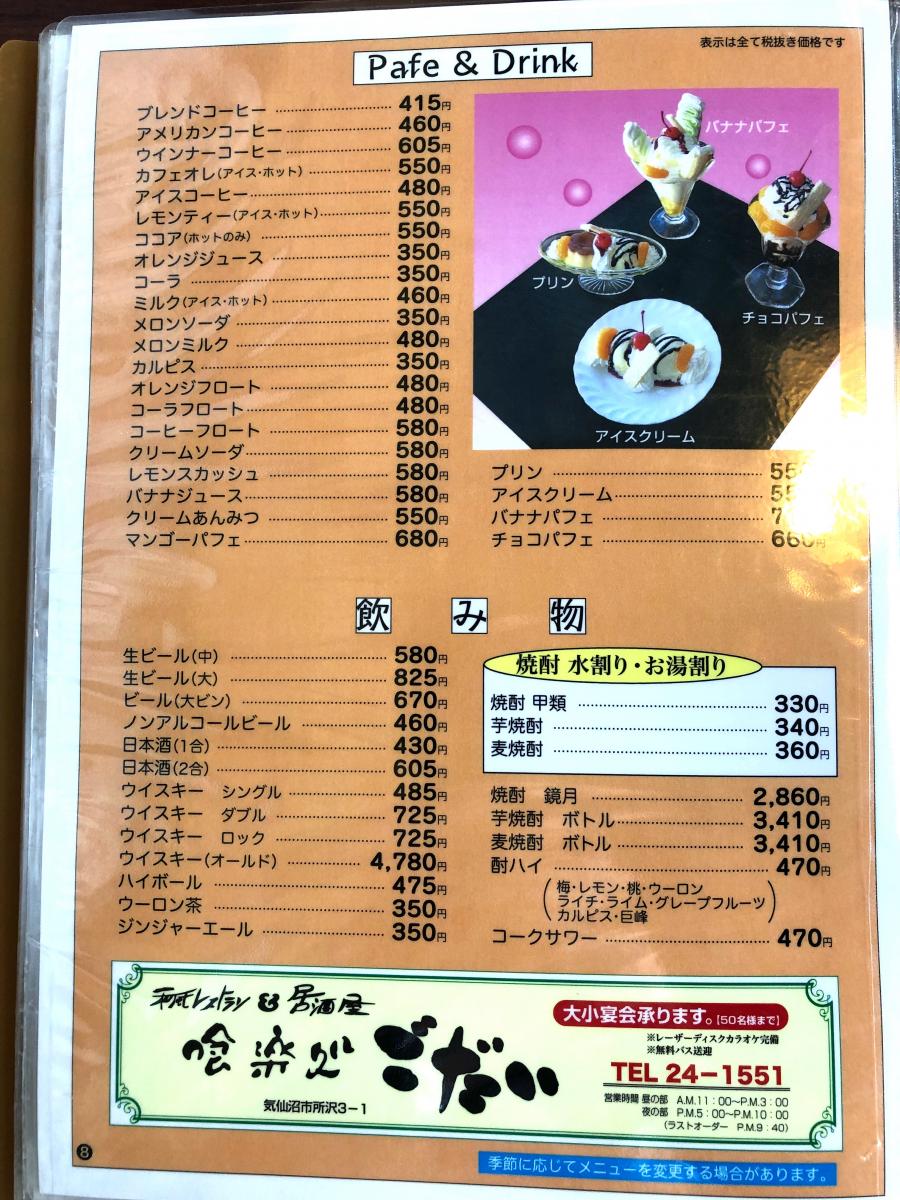 表示は全て税抜き価格です
Pafe & Drink
ブレンドコーヒー 415円
アメリカンコーヒー 460円
ウインナーコーヒー 605円
カフェオレ(アイス・ホット) 550円
アイスコーヒー 480円
レモンティー(アイス・ホット) 550円
ココア(ホットのみ) 550円
オレンジジュース 350円
コーラ 350円
ミルク(アイス・ホット) 460円
メロンソーダ 350円
メロンミルク 480円
カルピス 350円
オレンジフロート 480円
コーラフロート 480円
コーヒーフロート 580円
クリームソーダ 580円
レモンスカッシュ 580円
バナナジュース 580円
クリームあんみつ 550円
マンゴーパフェ 680円
バナナパフェ
プリン
チョコパフェ
アイスクリーム
プリン
アイスクリーム
バナナパフェ
チョコパフェ 660円
飲み物
生ビール(中) 580円
生ビール(大) 825円
ビール(大ビン) 670円
ノンアルコールビール 460円
日本酒(1合) 430円
日本酒(2合) 605円
ウイスキー シングル 485円
ウイスキー ダブル 725円
ウイスキー ロック 725円
ウイスキー(オールド) 4,780円
ハイボール 475円
ウーロン茶 350円
ジンジャーエール 350円
焼酎 水割り・お湯割り
焼酎 甲類 330円
芋焼酎 340円
麦焼酎 360円
焼酎 鏡月 2,860円
芋焼酎 ボトル 3,410円
麦焼酎 ボトル 3,410円
酎ハイ 470円
(梅・レモン・桃・ウーロン
ライチ・ライム・グレープフルーツ
カルピス・巨峰)
コークサワー 470円
和風レストラン&居酒屋
喰楽処 ごだい
気仙沼市所沢3-1
大小宴会承ります。[50名様まで]
※レーザーディスクカラオケ完備
※無料バス送迎
TEL 24-1551
営業時間 昼の部 A.M.11:00～P.M.3:00
夜の部 P.M.5:00～P.M.10:00
(ラストオーダー P.M.9:40)
8
季節に応じてメニューを変更する場合があります。